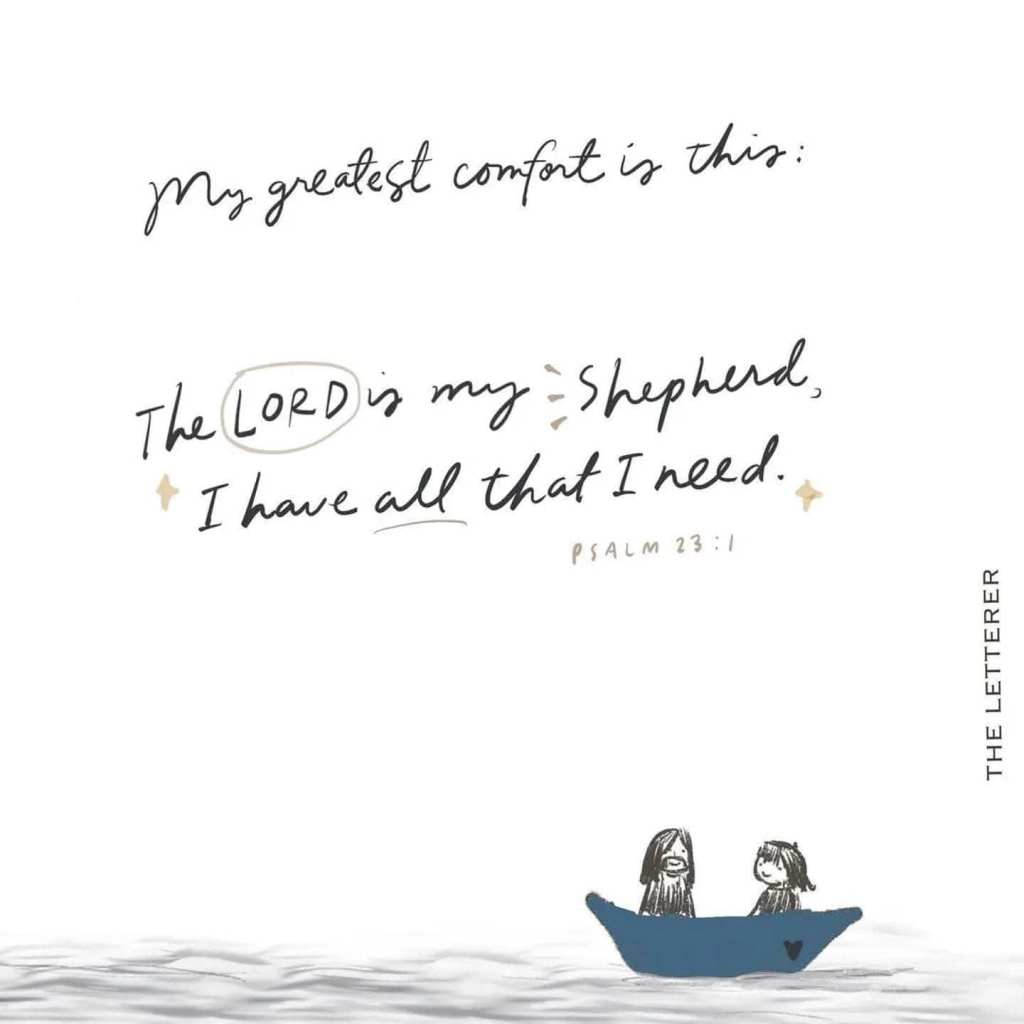 My greatest comfort is this:
The LORD is my Shepherd,
I have all that I need.
PSALM 23:1
THE LETTERER